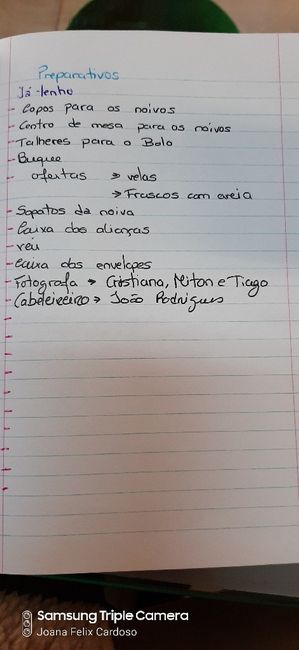 Preparativos
Já tenho
- Copos para os noivos
- Centro de mesa para os noivos
- Talheres para o Bolo
- Buquee
ofertas → velas
→ Frascos com areia
- Sapatos da noiva
- Caixa das alianças
- véu
- Caixa dos envelopes
- Fotografa → Cristiana, Milton e Tiago
- Cabeleireiro → João Rodrigues
Samsung Triple Camera
Joana Felix Cardoso